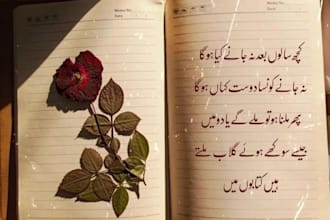 Memo No.
Date
Memo No.
Date
کچھ سالوں بعد نہ جانے کیا ہوگا
نہ جانے کونسا دوست کہاں ہوگا
پھر ملنا ہو تو ملے گے یادو میں
جیسے سوکھے ہوئے گلاب ملتے
ہیں کتابوں میں